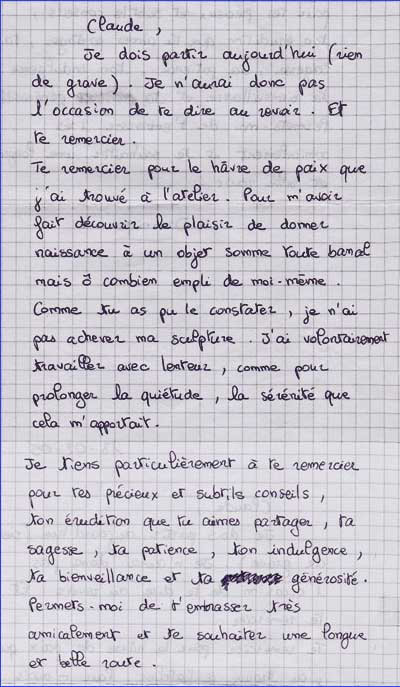 Claude,
Je dois partir aujourd'hui (rien
de grave). Je n'aurai donc pas
l'occasion de te dire au revoir. Et
te remercier.
Te remercier pour le hâvre de paix que
j'ai trouvé à l'atelier. Pour m'avoir
fait découvrir le plaisir de donner
naissance à un objet somme toute banal
mais ô combien empli de moi-même.
Comme tu as pu le constater, je n'ai
pas achever ma sculpture. J'ai volontairement
travailler avec lenteur, comme pour
prolonger la quiétude, la sérénité que
cela m'apportait.
Je tiens particulièrement à te remercier
pour tes précieux et subtils conseils,
ton érudition que tu aimes partager, ta
sagesse, ta patience, ton indulgence,
ta bienveillance et ta générosité.
Permets-moi de t'embrasser très
amicalement et te souhaiter une longue
et belle route.